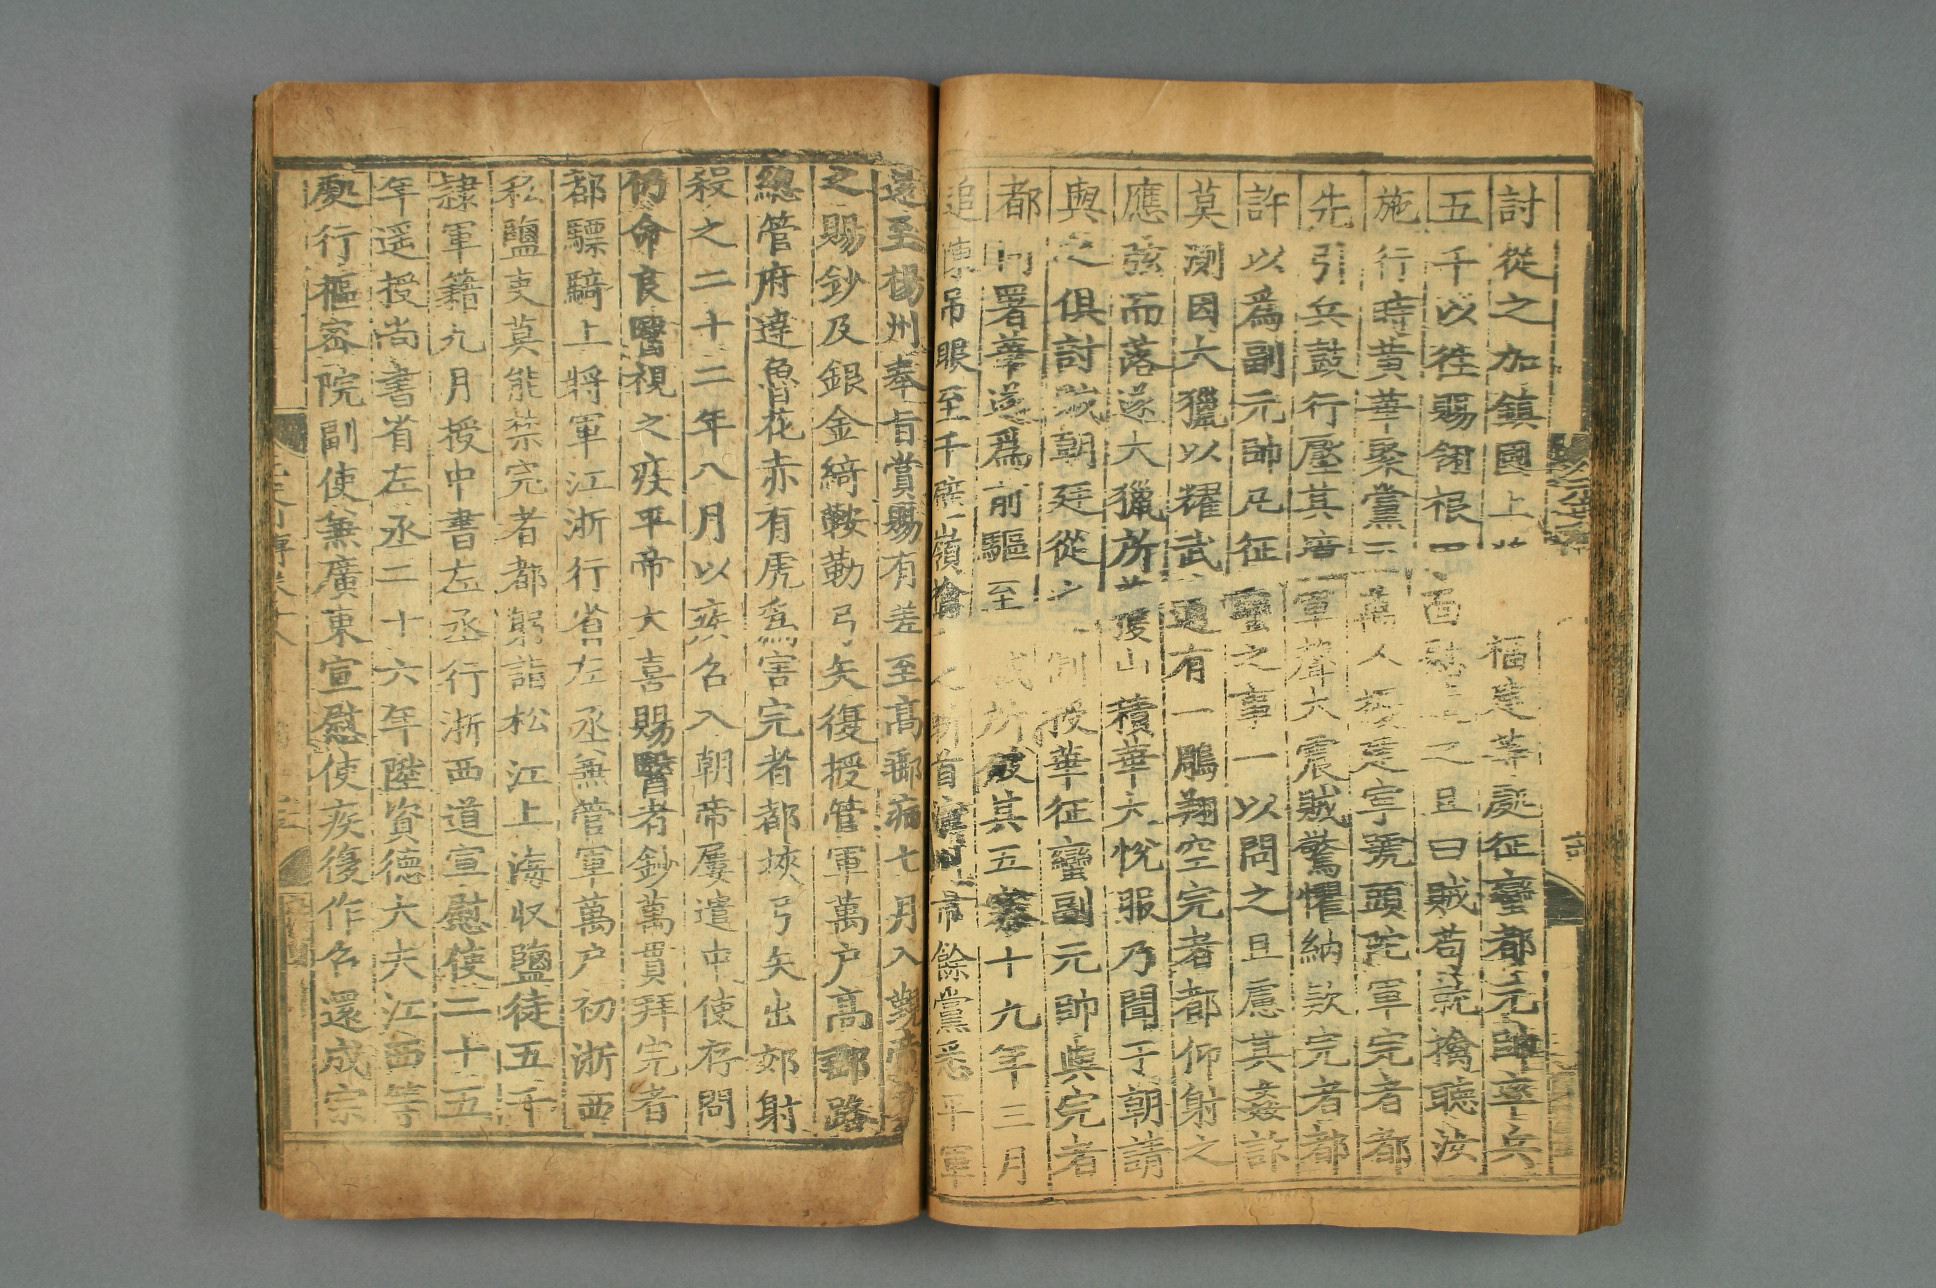 討從之加鎮國上 福建等處征蠻都元帥率兵
五千以往賜翎根 面慰遣之且曰賊苟就擒聽汝
施行時黄華聚黨三 萬人 擾建寧號頭陀軍完者都
先引兵鼓行壓其境 軍聲大震賊驚懼納款完者都
許以為副元帥凡征 蠻之事一以問之且慮其姦詐
莫測因大獵以耀武 適有一鵰翔空完者都仰射之
應弦而落遂大獵所 獲山積華大悅服乃聞于朝請
與之俱討賊朝廷從之 制授華征蠻副元帥與完者
都同署華遂為前驅至 賊所破其五寨十九年三月
追陳吊眼至千壁嶺擒 之斬首漳州市餘黨悉平軍
還至楊州奉旨賞賜有差至高郵病七月入覲帝
之賜鈔及銀金綺鞍勒弓矢復授管軍萬户高郵路
總管府達魯花赤有虎為害完者都挾弓矢出郊射
殺之二十二年八月以疾召入朝帝屢遣中使存問
仍命良醫視之疾平帝大喜賜醫者鈔萬貫拜完者
都驃騎上將軍江浙行省左丞兼管軍萬户初浙西
私鹽吏莫能禁完者都躬詣松江上海收鹽徒五千
隷軍籍九月授中書左丞行浙西道宣慰使二十五
年遥授尚書省左丞二十六年陞資德大夫江西等
處行樞密院副使兼廣東宣慰使疾復作召還成宗